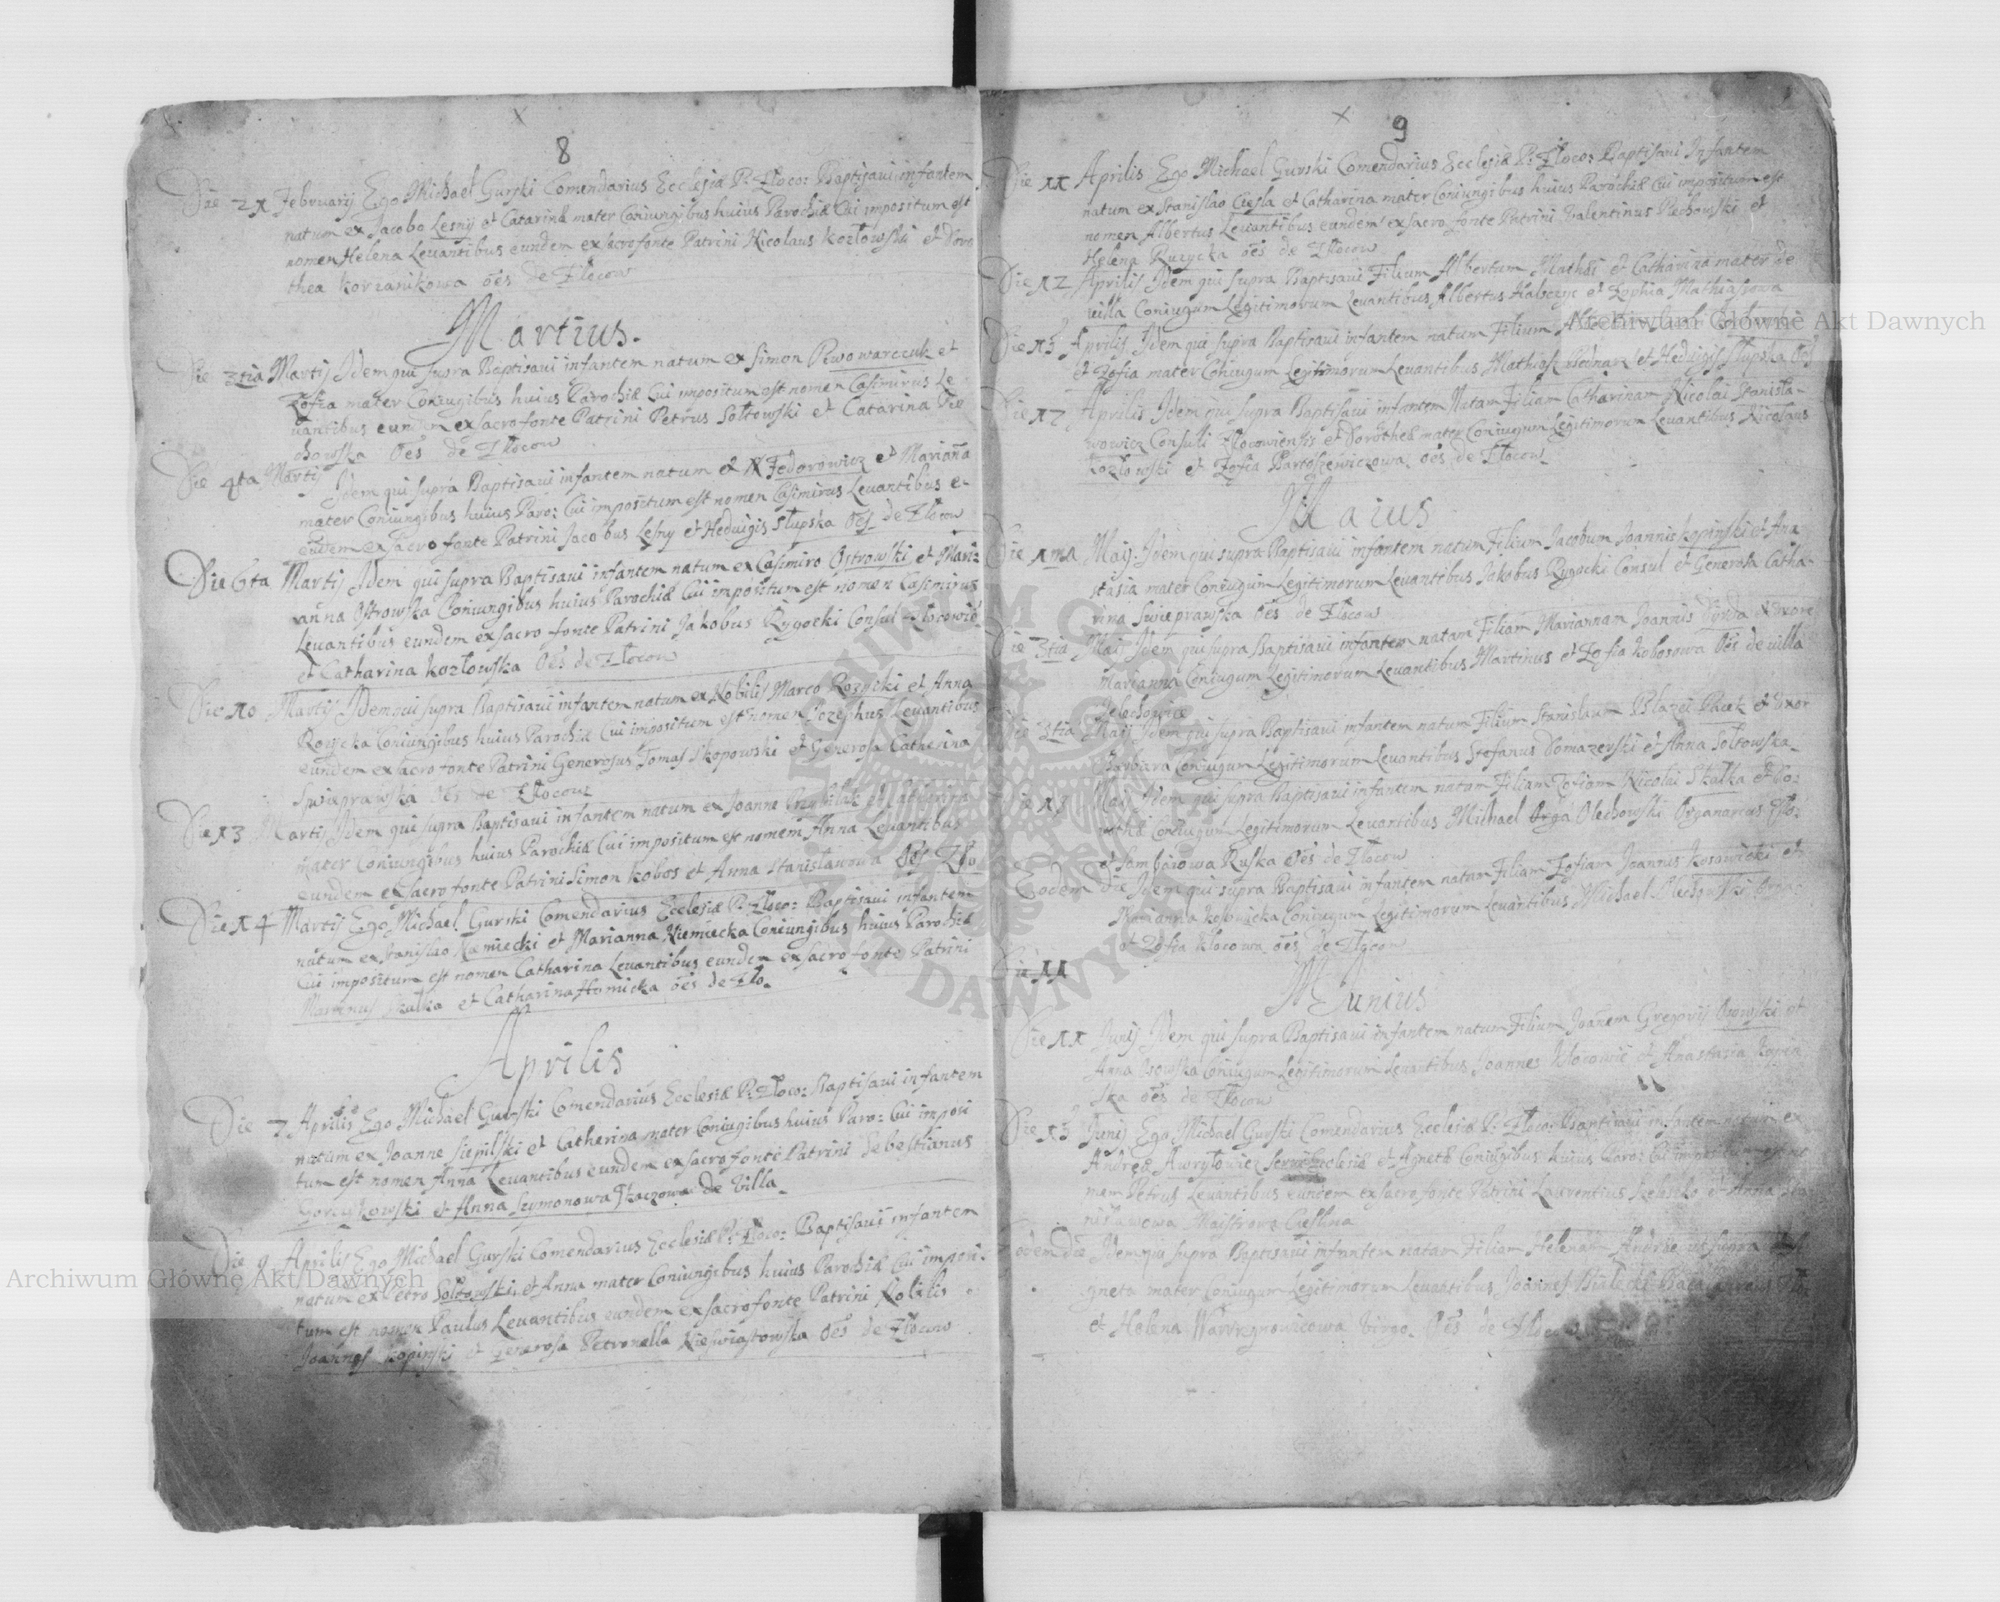 8
Die 21 Februarij Ego Michael Gurski Comendarius Ecclesiæ P: Złoco: Baptisaui infantem
natum ex Jacobo Lesny et Catarina mater Coniungibus huius Parochiæ Cui impositum est
nomen Helena Leuantibus eundem ex sacro fonte Patrini Nicolaus Kozłowski et Doro
thea Korzanikowa oēs de Złocow
Martius.
Die 3tia Martij Idem qui supra Baptisaui infantem natum ex Simon Pewowarczuk et
Zofia mater Coniugibus huius Parochiæ Cui impositum est nomen Casimirus Le
uantibus eundem ex sacro fonte Patrini Petrus Sołtowski et Catarina
chowska Oēs de Złocow
Die 4ta Martij Idem qui supra Baptisaui infantem natum et N Fedorowicz et Mariana
mater Coniungibus huius Paro: Cui impositum est nomen Casimirus Leuantibus e-
undem ex sacro fonte Patrini Jacobus Lesny et Heduigis Słupska Oēs de Złocow
Die 6ta Martij Idem qui supra Baptisaui infantem natum ex Casimiro Ostrowski et Mari:
anna Ostrowska Coniungibus huius Parochiæ Cui impositum est nomen Casimirus
Leuantibus eundem ex sacro fonte Patrini Jakobus Rygocki Consul Złocowie
et Catharina Kozłowska Oēs de Złocow
Die 10 Martij Idem qui supra Baptisaui infantem natum ex Nobilis Marco Rozycki et Anna
Rozycka Coniungibus huius Parochiæ Cui impositum est nomen Jozephus Leuantibus
eundem ex sacro fonte Patrini Generosus Tomas Skopowski et Generosa Catherina
Swieprawska Oēs de Złocow
Die 13 Martij Idem qui supra Baptisaui infantem natum ex Joanne et Catharina
mater Coniungibus huius Parochiæ Cui impositum est nomem Anna Leuantibus
eundem ex sacro fonte Patrini Simon Kobos et Anna Stanisławowa Oēs Zło
Die 14 Martij Ego Michael Gurski Comendarius Ecclesiæ P: Złoco: Baptisaui infantem
natum ex Stanislao et Marianna Niemiecka Coniungibus huius Parochiæ
Cui impositum est nomen Catharina Leuantibus eundem ex sacro fonte Patrini
Martinus Skałka et Catharina Homicka oēs de Zło.
Aprilis
Die 7 Aprilis Ego Michael Gurski Comendarius Ecclesiæ P: Złoco: Baptisaui infantem
natum ex Joanne Siepilski et Catherina mater Coniugibus huius Paro: Cui imposi
tum est nomen Anna Leuantibus eundem ex sacro fonte Patrini Sebestianus
et Anna Szymonowa Tkaczowa de Villa
Die 9 Aprilis Ego Michael Gurski Comendarius Ecclesiæ P: Złoco: Baptisaui infantem
natum ex Petro Sołtowski et Anna mater Coniungibus huius Parochiæ Cui imposi:
tum est nomen Paulus Leuantibus eundem ex sacro fonte Patrini
Joannes Kopinski et Generosa Petronella Niewiastowska Oēs de Złocow
9
Die 11 Aprilis Ego Michael Gurski Comendarius Ecclesiæ P: Złoco: Baptisaui Infantem
natum ex Stanislao Ciesla et Catharina mater Coniungibus huius Parochiæ Cui impositum est
nomen Albertus Leuantibus eundem ex sacro fonte Patrini Valentinus Piechowski et
Helena Ruzycka oēs de Złocow
Die 12 Aprilis Idem qui supra Baptisaui Filium Albertum Mathei et Catharina mater de
villa Coniugum Legitimorum Leuantibus Albertus et Zophia Mathiaszowa
Aprilis Idem qui supra Baptisaui infantem natum Filium
et Zofia mater Coniugum Legitimorum Leuantibus Mathias Bednarz et Heduigis Słupska Oēs
Die 17 Aprilis Idem qui supra Baptisaui infantem Natam Filiam Catharinam Nicolai Stanisła-
wowicz Consuli Złocowiensis et Dorotheæ mater Coniugum Legitimorum Leuantibus Nicolaus
Kozłowski et Zofia Bartoszewiczowa oēs de Złocow
Maius
Die 1ma Maij Idem qui supra Baptisaui infantem natum Filium Jacobum Joannis Kopinski et Ana
stasia mater Coniugum Legitimorum Leuantibus Jakobus Rygocki Consul et Generosa Catha-
rina Swieprawska Oēs de Złocow
Die 3tia Maij Idem qui supra Baptisaui infantem natam Filiam Mariannam Joannis Uxore
Marianna Coniugum Legitimorum Leuantibus Martinus et Zofia Kobosowa Oēs de villa
Zelechowice
Die 3tia Maij Idem qui supra Baptisaui infantem natum Filium Stanislaum Błazei et Uxor
Barbara Coniugum Legitimorum Leuantibus Stefanus Domazerski et Anna Sołtowska
Maij Idem qui supra Baptisaui infantem natam Filiam Zofiam Nicolai Skałka et Do:
rothæ Coniugum Legitimorum Leuantibus Michael Orga Olechowski Organarius Zło:
et Ruska Oēs de Złocow
Eodem die Idem qui supra Baptisaui infantem natam Filiam Zofiam Joannis Kosowicki et
Marianna Coniugum Legitimorum Leuantibus Michael
et Zofia Klocowa oēs de Złocow
Die 11
Munius
Die 11 Junij Idem qui supra Baptisaui infantem natum Filium Joanem Gregorij Osowski et
Anna Osowska Coniugum Legitimorum Leuantibus Joannes et Anastazia Kopin
ska oēs de Złocow
Junij Ego Michael Gurski Comendarius Ecclesiæ P: Złoco: Baptisaui infantem natum ex
Andreæ Awryłowicz Ecclesiæ et Agnetæ Coniugibus huius Paro: Cui impositum est no
men Petrus Leuantibus eundem ex sacro fonte Patrini Laurentius et Anna Sta
nisławowa
Eodem die Idem qui supra Baptisaui infantem natam Filiam Helenam Andreæ ut supra
gneta mater Coniugum Legitimorum Leuantibus Joannes Białecki
et Helena Virgo. Oēs de Złoco
Archiwum Główne Akt Dawnych
Archiwum Główne Akt Dawnych